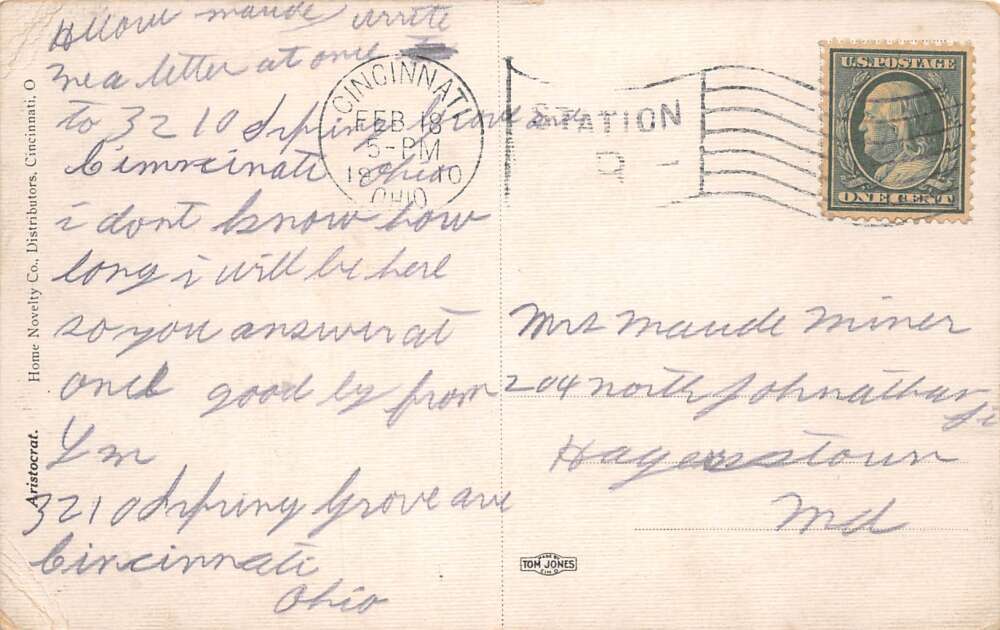 Hllow maude write
me a letter at once
to 3210 Spring Grove ave
Cimncinati Ohio
i dont know how
long i will be here
so you answer at
once good by from
3210 Spring Grove ave
Cincinnati
Ohio
CINCINNATI
FEB 18
5-PM
1910
OHIO
STATION
U.S. POSTAGE
ONE CENT
Mrs Maude Miner
204 north Johnathan
St
Hagerstown
Md
Aristocrat. Home Novelty Co., Distributors, Cincinnati, O
MADE BY
TOM JONES
CIN O